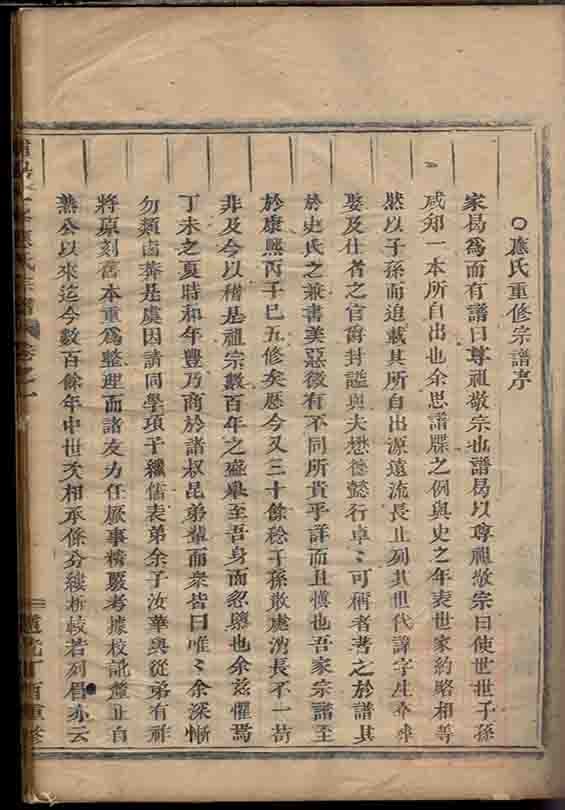 ○應氏重修宗譜序
家曷為而有譜曰尊祖敬宗也譜曷以尊祖敬宗曰使世世子孫
咸知一本所自出也余思譜牒之例與史之年表世家約略相等
然以子孫而追載其所自出源遠流長止列其世代諱字生卒
娶及仕者之官爵封諡與夫懋德懿行卓卓可稱者著之於譜其
於史氏之兼書美惡微有不同所貴乎詳而且慎也吾家宗譜至
於康熙丙子已五修矣歷今又三十餘稔子孫散處消長不一苟
非及今以稽是祖宗數百年之盛舉至吾身而忽隳也余茲懼焉
丁未之夏時和年豐乃商於諸叔昆弟輩而衆皆曰唯唯余深慚
勿類鹵莽是虞因請同學項子纘儒表弟余子汝華與從弟有祥
將原刻舊本重為整理而諸友力任厥事精覈考據校訛釐正自
公以來迄今數百餘年中世次相承條分縷析較若列眉亦云
應氏宗譜 卷之一
道光丁酉重修